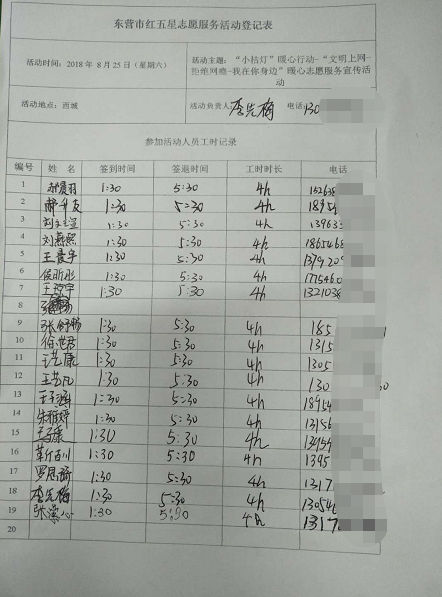 东营市红五星志愿服务活动登记表
活动时间：2018年8月25日（星期六）
活动主题：“小桔灯”暖心行动-“文明上网-
拒绝网瘾-我在你身边”暖心志愿服务宣传活
动
活动地点：西城
活动负责人 李先梅 电话 130
参加活动人员工时记录
编号 姓名 签到时间 签退时间 工时时长 电话
1 1:30 5:30 4h 152638
2 1:30 5:30 4h 1895
3 1:30 5:30 4h 139633
4 刘燕熙 1:30 5:30 4h 1865468
5 1:30 5:30 4h 1379209
6 侯昕彤 1:30 5:30 4h 1775460
7 1:30 5:30 4h 1321038
8
9 张舒畅 1:30 5:30 4h 185
10 徐世君 1:30 5:30 4h 1315
11 王艺康 1:30 5:30 4h 1305
12 王艺凡 1:30 5:30 4h 130
13 1:30 5:30 4h 18954
14 1:30 5:30 4h 13156
15 1:30 5:30 4h 13954
16 1:30 5:30 4h 1395
17 1:30 5:30 4h 1317
18 李先梅 1:30 5:30 4h 13054
19 1:30 5:30 4h 1317
20